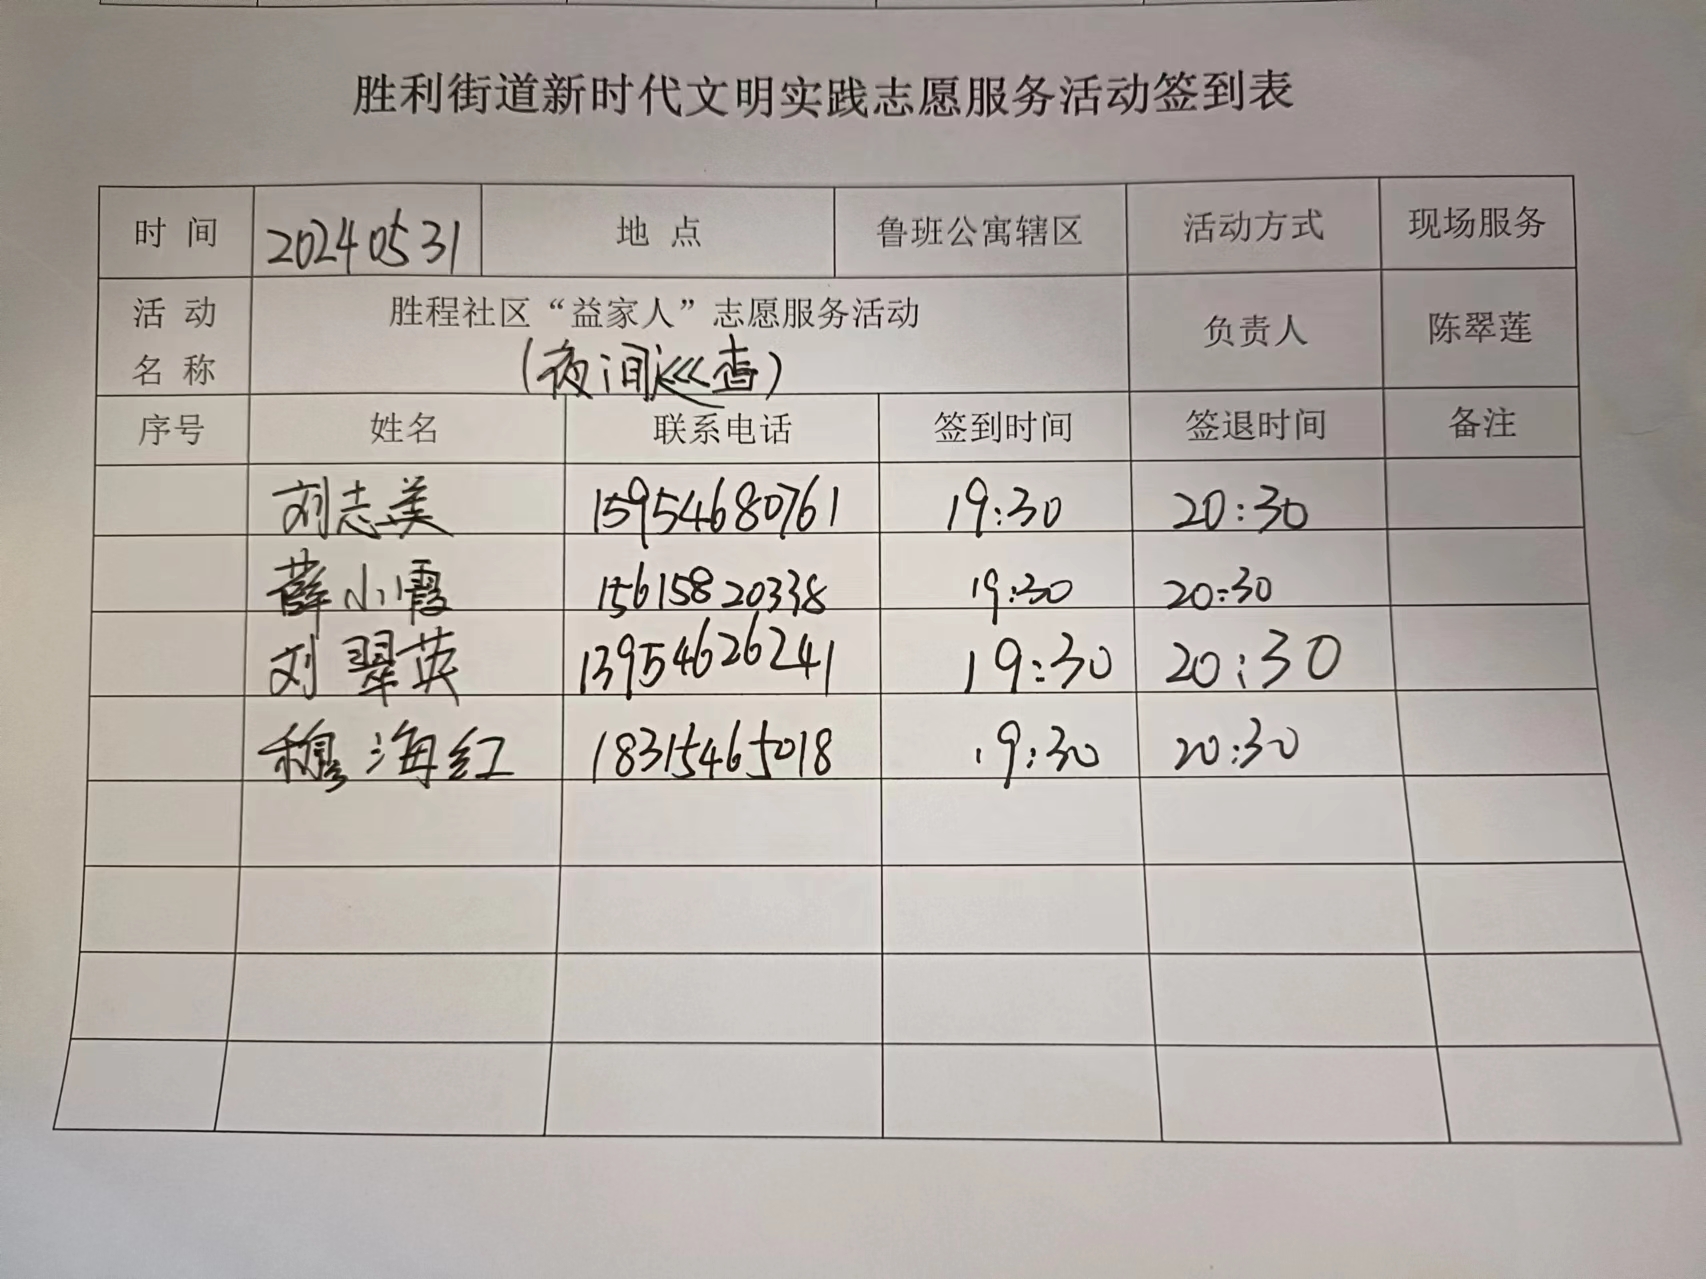 胜利街道新时代文明实践志愿服务活动签到表
时 间 20240531 地 点 鲁班公寓辖区 活动方式 现场服务
活 动 名 称 胜程社区“益家人”志愿服务活动 负责人 陈翠莲
(夜间巡查)
序号 姓名 联系电话 签到时间 签退时间 备注
刘志美 15954680761 19:30 20:30
薛小霞 15615820338 19:30 20:30
刘翠英 13954626241 19:30 20:30
穆海红 18315465018 19:30 20:30